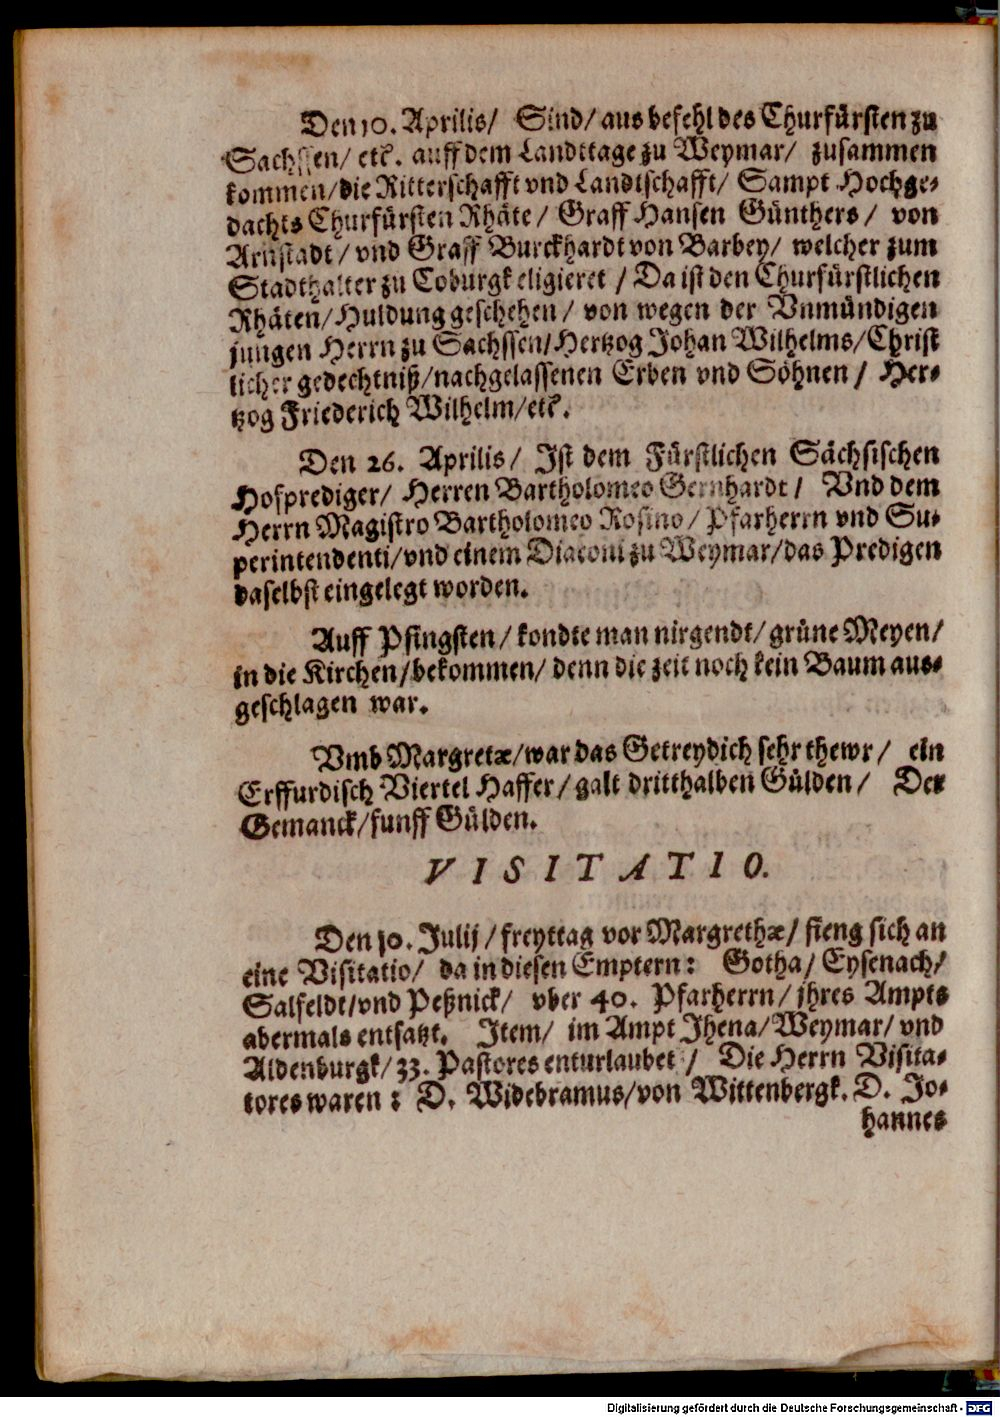 Den 10. Aprilis/ Sind/ aus befehl des Churfürsten zu
Sachssen/ etc. auff dem Landttage zu Weymar/ zusammen
kommen/ die Ritterschafft vnd Landtschafft/ Sampt Hochge-
dachts Churfürsten Rhäte/ Graff Hansen Günthers/ von
Arnstadt/ vnd Graff Burckhardt von Barbey/ welcher zum
Stadthalter zu Coburgk eligieret/ Da ist den Churfürstlichen
Rhäten/ Huldung geschehen/ von wegen der Vnmündigen
jungen Herrn zu Sachssen/ Hertzog Johan Wilhelms/ Christ
licher gedechtniß/ nachgelassenen Erben vnd Söhnen/ Her-
tzog Friederich Wilhelm/ etc.
Den 26. Aprilis/ Ist dem Fürstlichen Sächsischen
Hofprediger/ Herren Bartholomeo Gernhardt/ Vnd dem
Herrn Magistro Bartholomeo Rosino/ Pfarherrn vnd Su-
perintendenti/ vnd einem Diaconi zu Weymar/ das Predigen
daselbst eingelegt worden.
Auff Pfingsten/ kondte man nirgendt/ grüne Meyen/
in die Kirchen/ bekommen/ denn die zeit noch kein Baum aus-
geschlagen war.
Vmb Margretæ/ war das Getreydich sehr thewr/ ein
Erffurdisch Viertel Haffer/ galt dritthalben Gülden/ Der
Gemanck/ funff Gülden.
VISITATIO.
Den 10. Julij/ freyttag vor Margrethæ/ fieng sich an
eine Visitatio/ da in diesen Emptern: Gotha/ Eysenach/
Salfeldt/ vnd Peßnick/ vber 40. Pfarherrn/ jhres Ampts
abermals entsatzt. Item/ im Ampt Jhena/ Weymar/ vnd
Aldenburgk/ 33. Pastores enturlaubet/ Die Herrn Visita-
tores waren: D. Widebramus/ von Wittenbergk. D. Jo-
hannes
Digitalisierung gefördert durch die Deutsche Forschungsgemeinschaft - DFG